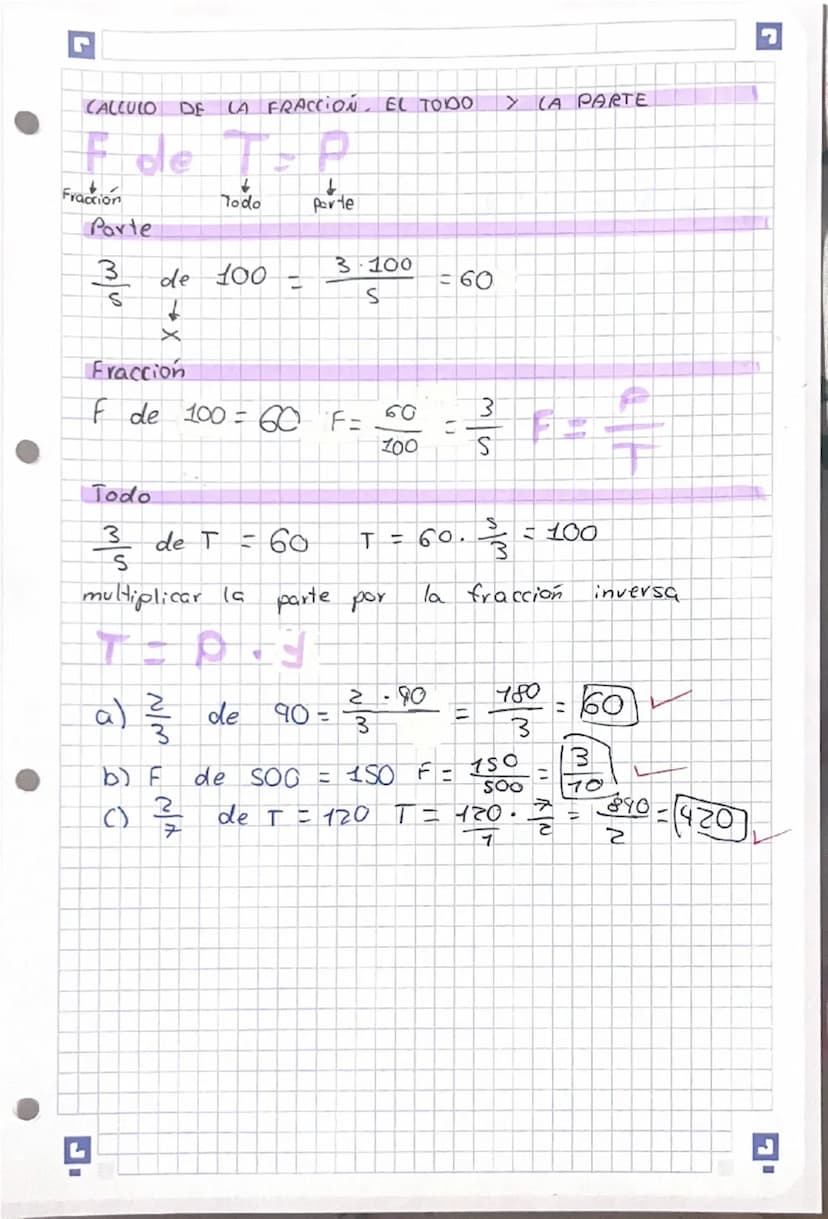 CALCULO DE LA FRACCIÓN. EL TODO Y LA PARTE
F de T = P
Fracción Todo Parte
Parte
3/5 de 100 = 3·100/5 = 60
x
Fracción
F de 100 = 60 F = 60/100 = 3/5 F = P/T
Todo
3/5 de T = 60 T = 60 · 5/3 = 100
multiplicar la parte por la fracción inversa
T = P ·
a) 2/3 de 90 = 2·90/3 = 180/3 = 60
b) F de 500 = 150 F = 150/500 = 3/10
c) 2/7 de T = 120 T = 120/1 · 7/2 = 840/2 = 420